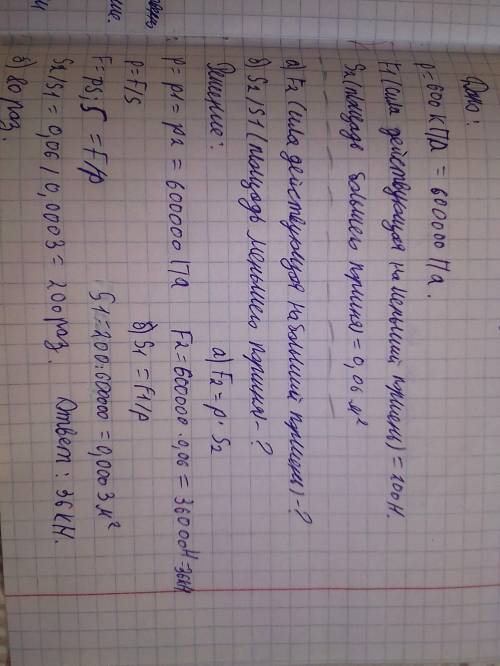 Дано:
p = 600 кПа = 600000 Па.
F1 (сила действующая на меньший поршень) = 200 Н.
S2 (площадь большего поршня) = 0,06 м²
а) F2 (сила действующая на больший поршень) - ?
б) S2/S1 (площадь меньшего поршня) - ?
Решение:
p = p1 = p2 = 600000 Па
p = F/S
F = ps; S = F/p
S2/S1 = 0,06 / 0,0003 = 200 раз.
б) 80 раз.
а) F2 = p · S2
F2 = 600000 · 0,06 = 36000Н = 36кН
б) S1 = F1/p
S1 = 200:600000 = 0,0003 м²
Ответ: 36кН.